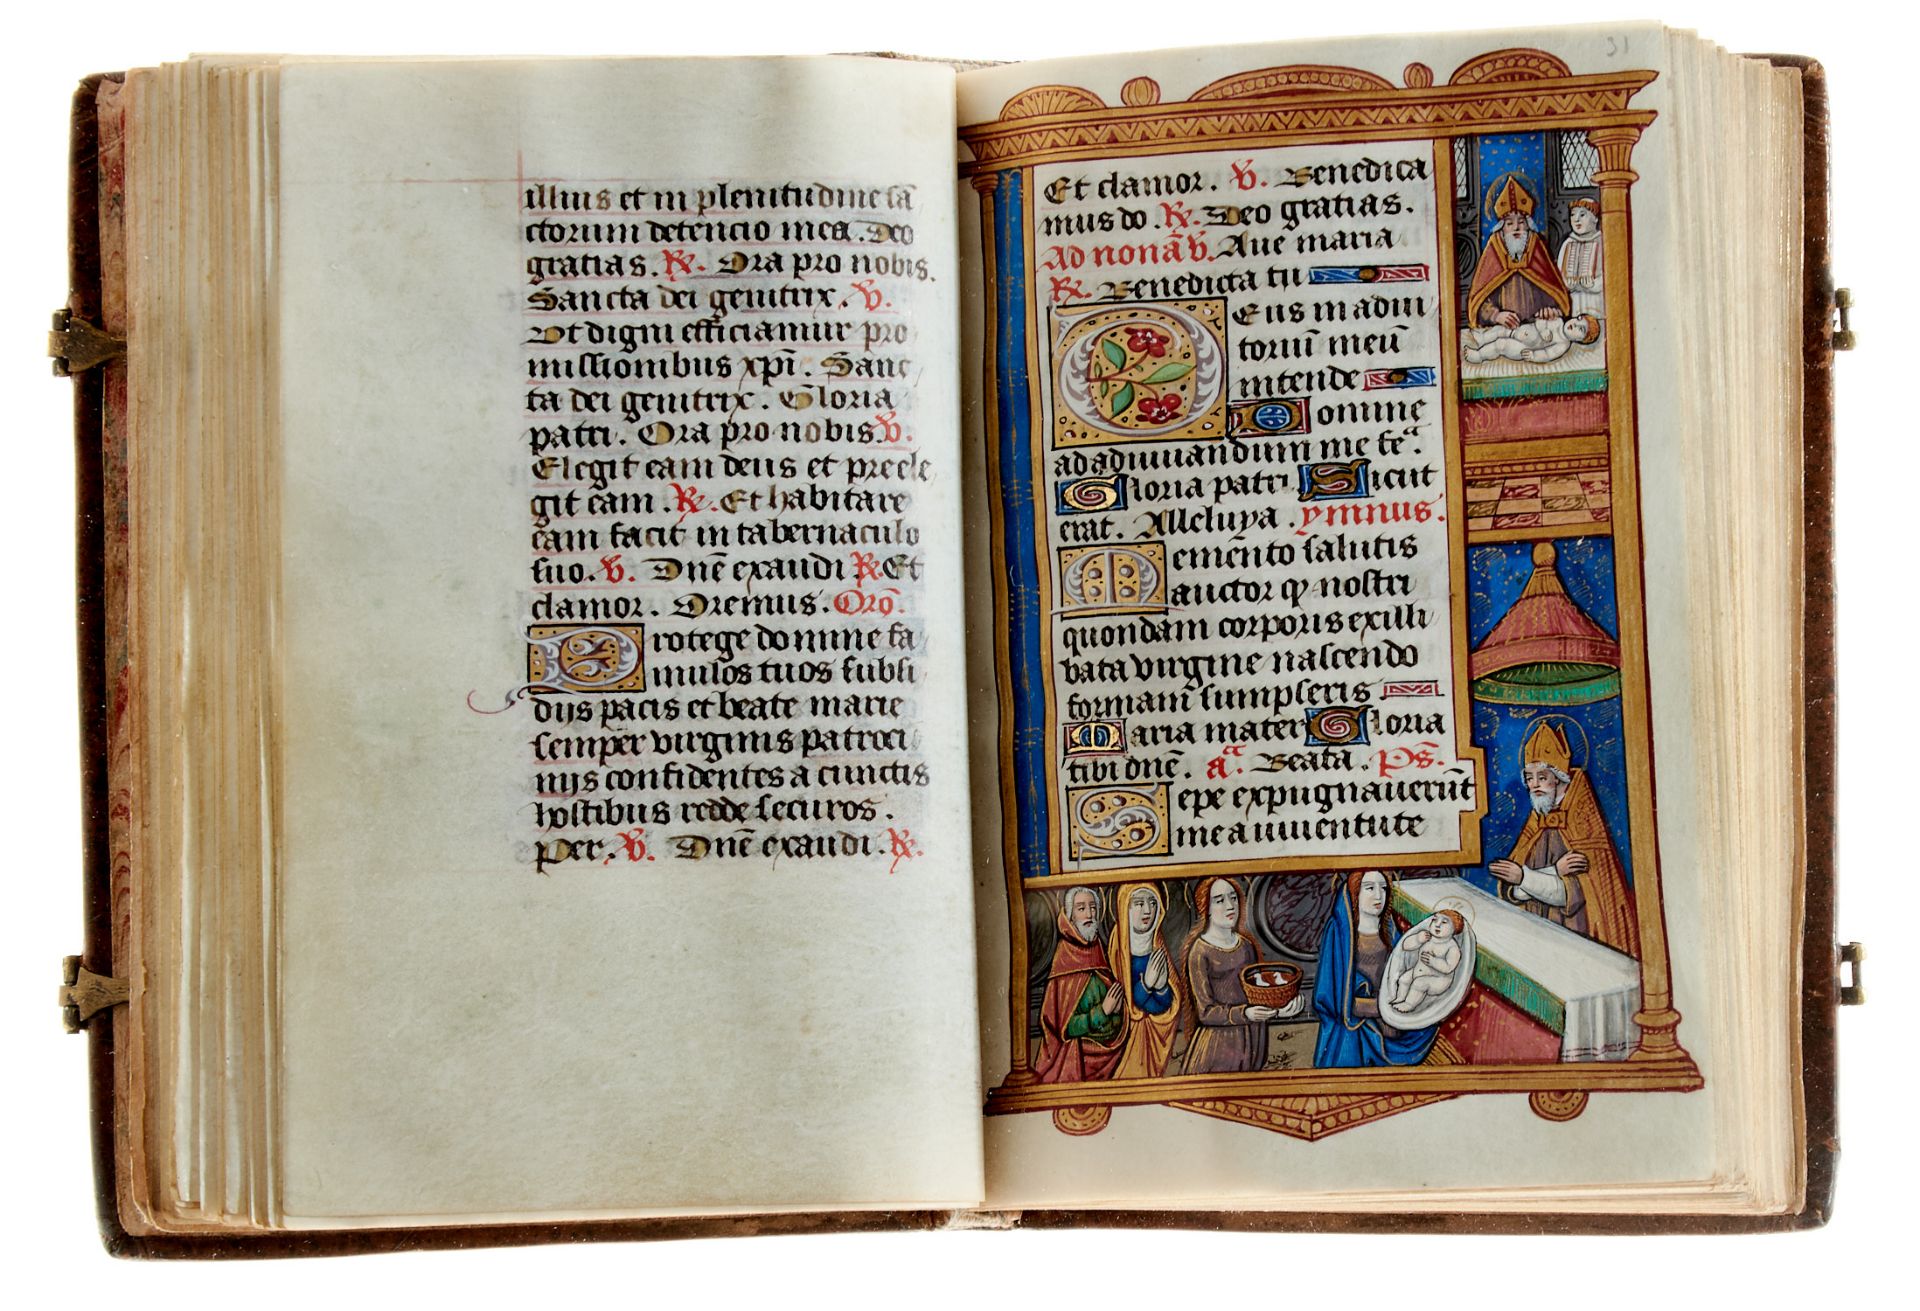 illius et in plenitudine sā
ctorum detencio mea. Deo
gratias. R̄. Ora pro nobis.
Sancta dei genitrix. V̄.
Ut digni efficiamur pro
missionibus xp̄i. Sanc
ta dei genitrix. Gloria
patri. Ora pro nobis. V̄.
Elegit eam deus et preele
git eam. R̄. Et habitare
eam facit in tabernaculo
suo. V̄. Dn̄e exaudi R̄. Et
clamor. Oremus. Orō.
Protege domine fa
mulos tuos subsi
diis pacis et beate marie
semper virginis patroci
niis confidentes a cunctis
hostibus redde securos.
Per. V̄. Dn̄e exaudi. R̄.
31
Et clamor. V̄. Benedica
mus do. R̄. Deo gratias.
Ad nonā V̄. Ave maria
R̄. Benedicta tu
Deus in adiu
toriū meū
intende
Domine
ad adiuuandum me feª.
Gloria patri Sicut
erat. Alleluya. ymnus.
Memēnto salutis
auctor ꝙ nostri
quondam corporis ex illi
bata virgine nascendo
formam̄ sumpseris
Maria mater Gloria
tibi dn̄e. aª. Beata. Ps̄.
Sepe expugnauerūt
me a iuuentute